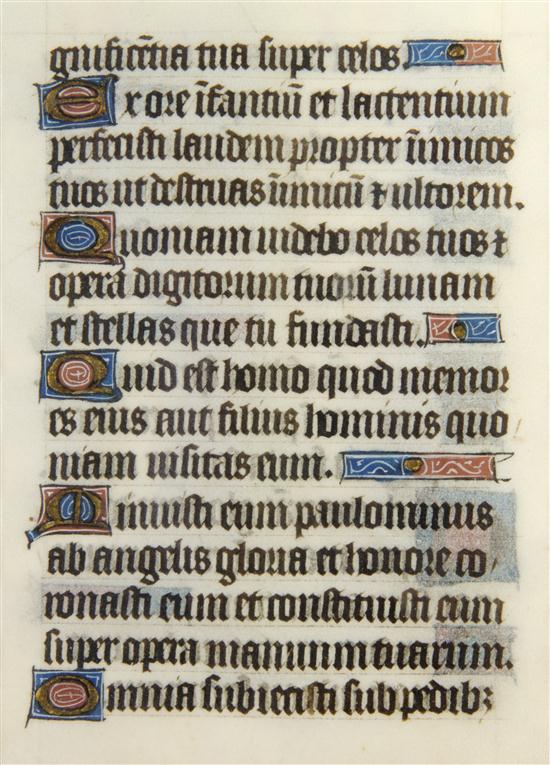 gnificētia tua super celos.
Ex ore īfantiū et lactentium
perfecisti laudem propter inīmicos
tuos ut destruas inimicū ⁊ ultorem.
Quoniam videbo celos tuos ⁊
opera digitorum tuorū lunam
et stellas que tu fundasti.
Quid est homo quod memor
es eius aut filius hominis quo
niam visitas eum.
Minuisti eum paulominus
ab angelis gloria et honore co
ronasti eum et constituisti eum
super opera manuum tuarum.
Omnia subiecisti sub pedibꝫ